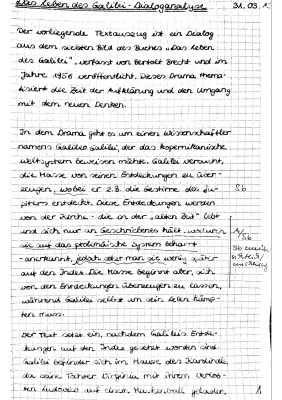 Das Leben des Galilei - Dialoganalyse 31.03.1
Der vorliegende Textauszug ist ein Dialog
aus dem siebten Bild des Buches „Das Leben
des Galilei", verfasst von Bertolt Brecht und im
Jahre 1956 veröffentlicht. Dieses Drama thema-
tisiert die Zeit der Aufklärung und den Umgang
mit dem neuen Denken.
In dem Drama geht es um einen Wissenschaftler
namens Galileo Galilei, der das kopernikanische
Weltsystem beweisen möchte. Galilei versucht,
die Masse von seinen Entdeckungen zu über-
zeugen, wobei er z.B. die Gestirne des Ju- Sb
piters entdeckt. Diese Entdeckungen werden
von der Kirche - die in der „alten Zeit" lebt
und sich nur an Geschriebenes hält,
sie auf das ptolemäische System beharrt
- anerkannt, jedoch setzt man sie wenig später
auf den Index. Die Masse beginnt aber, sich
von den Entdeckungen überzeugen zu lassen,
während Galilei selbst um sein Leben kämp-
fen muss.
Der Text setzt ein, nachdem Galileis Entde-
ckungen auf den Index gesetzt worden sind.
Galilei befindet sich im Hause des Kardinals,
da seine Tochter Virginia mit ihrem Verlob-
ten Ludovico auf einen Maskenball geladen